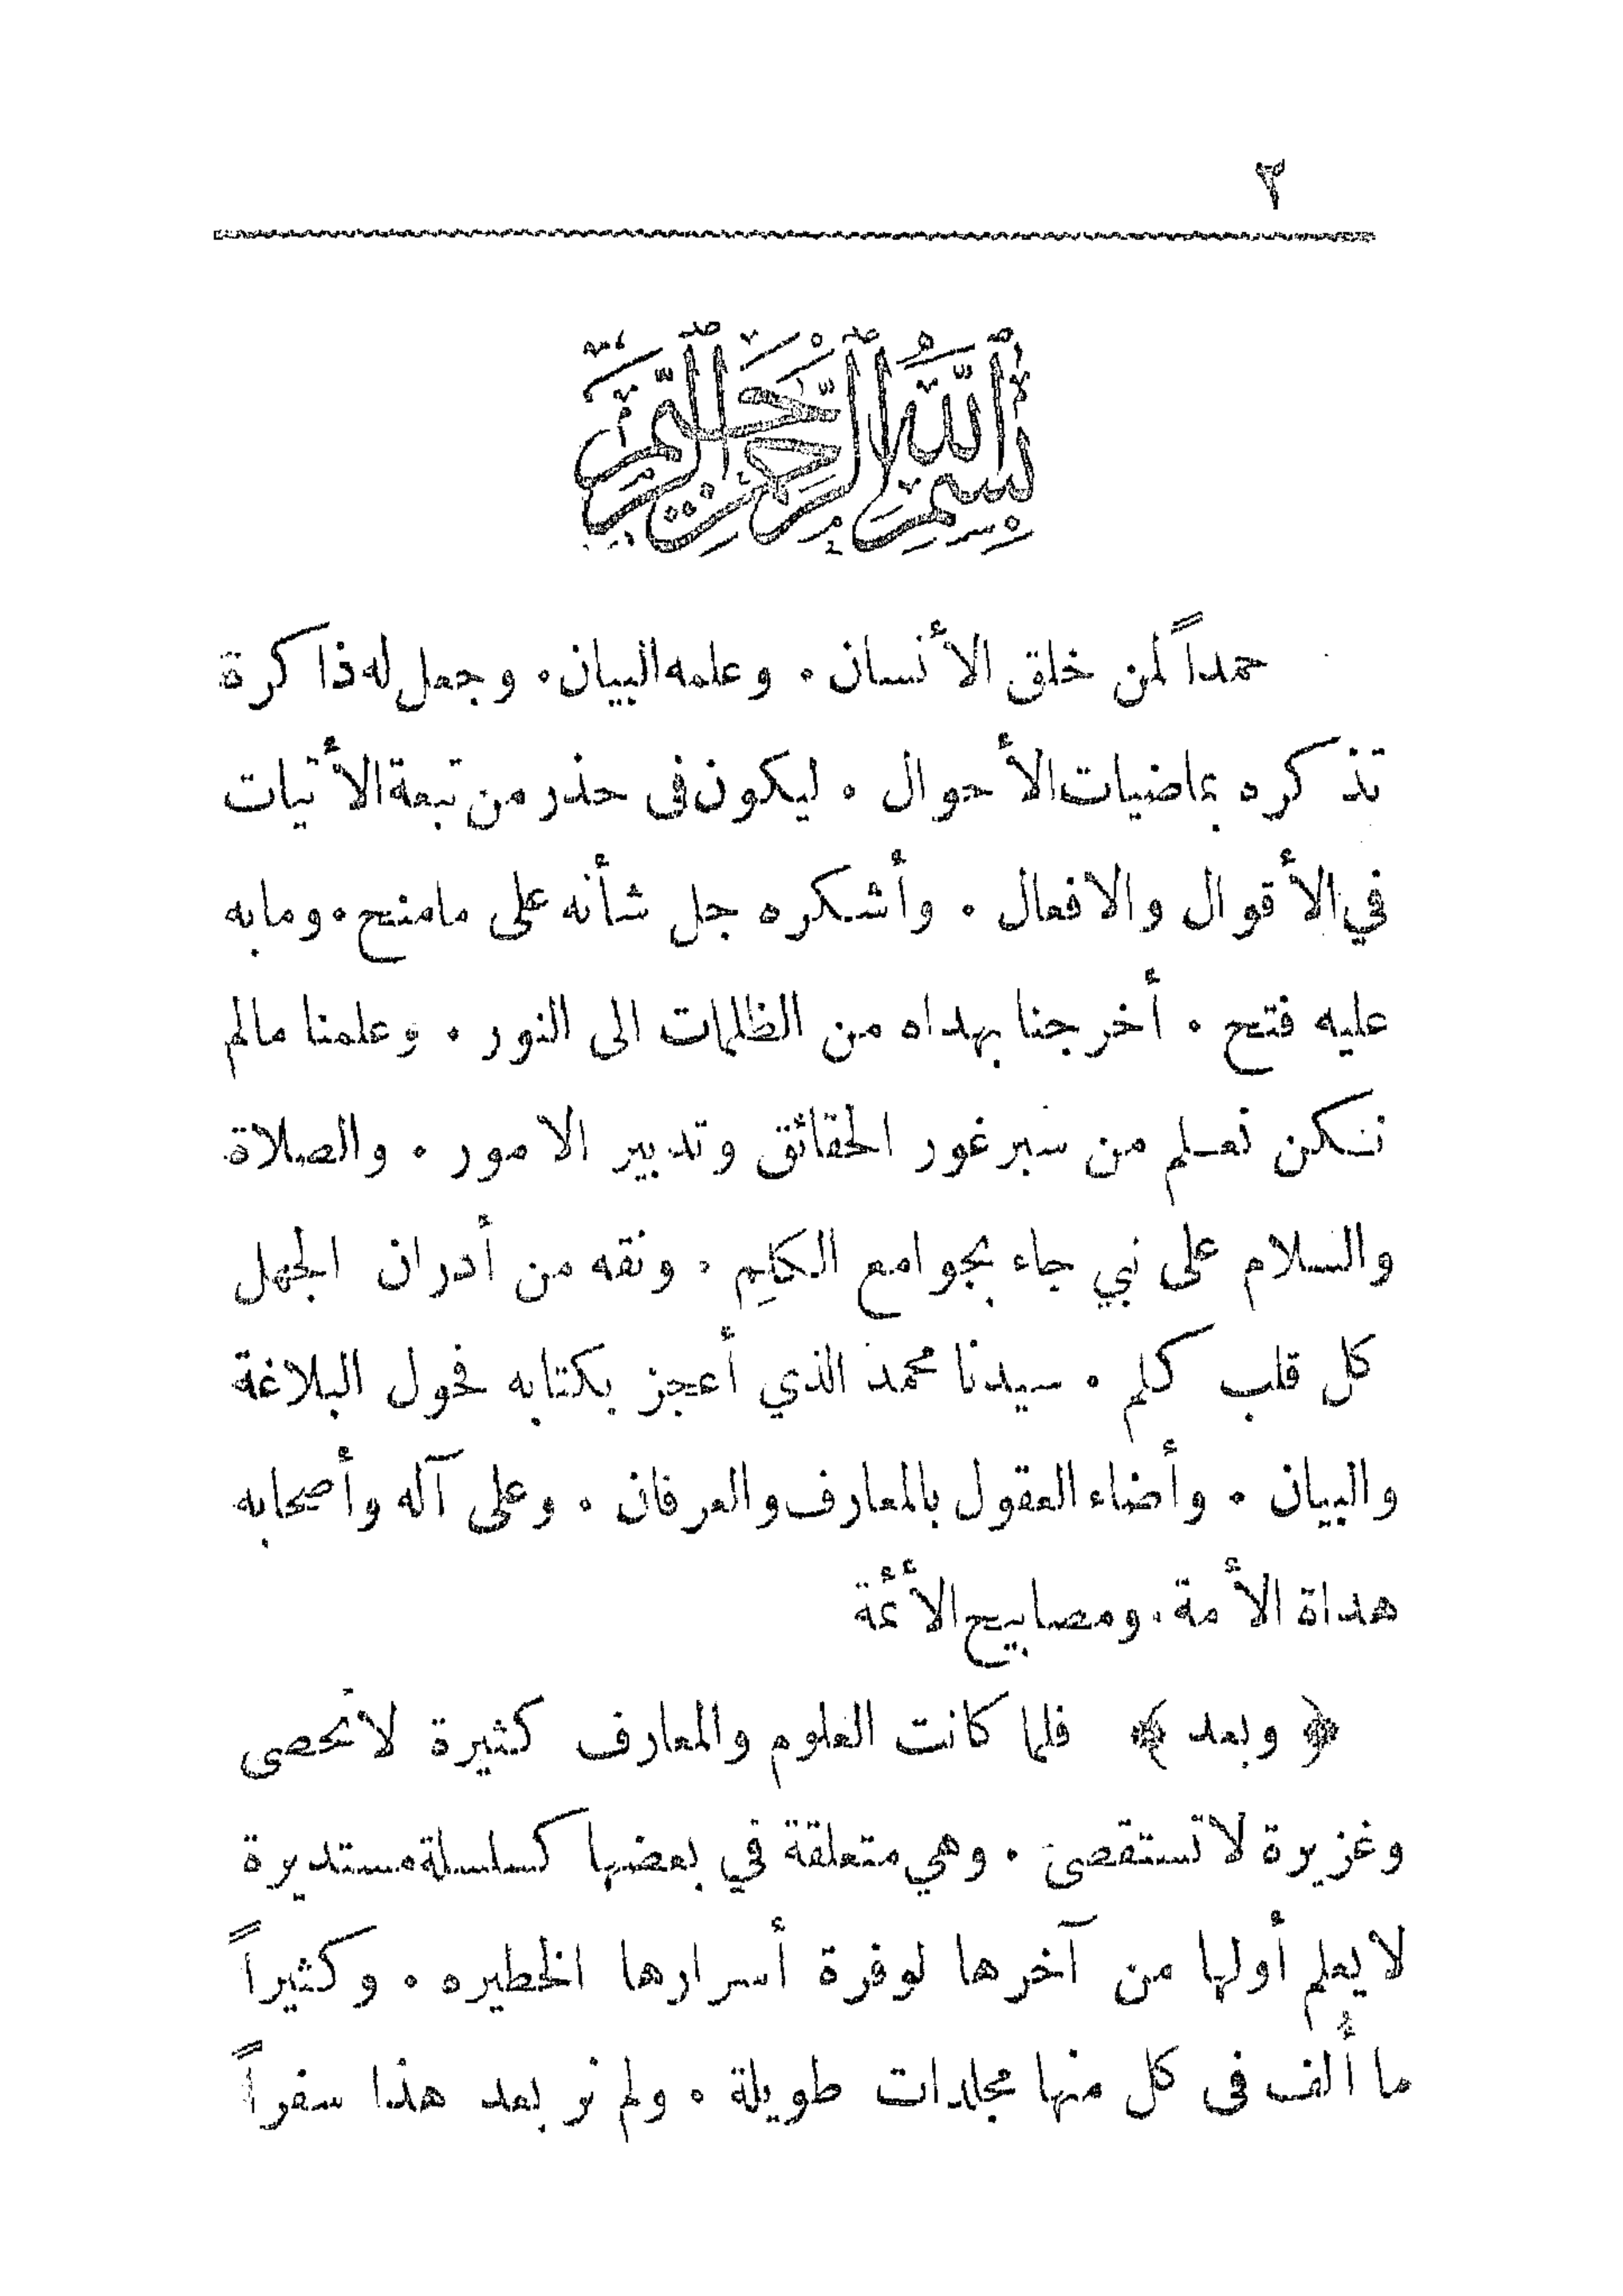 ٣
بسم الله الرحمن الرحيم
حمداً لمن خلق الأنسان . وعلمه البيان . وجعل له ذاكرة
تذكره بماضيات الأحوال . ليكون فى حذر من تبعة الأتيات
في الأقوال والافعال . وأشكره جل شأنه على مامنح . وما به
عليه فتح . أخرجنا بهداه من الظلمات الى النور . وعلمنا مالم
نكن نعلم من سبر غور الحقائق وتدبير الامور . والصلاة
والسلام على نبي جاء بجوامع الكلِم . ونقه من أدران الجهل
كل قلب كلم . سيدنا محمد الذي أعجز بكتابه فحول البلاغة
والبيان . وأضاء العقول بالمعارف والعرفان . وعلى آله وأصحابه
هداة الأمة . ومصابيح الأئمة
﴿ وبعد ﴾ فلما كانت العلوم والمعارف كثيرة لاتحصى
وغزيرة لاتستقصى . وهي متعلقة في بعضها كسلسلة مستديرة
لايعلم أولها من آخرها لوفرة أسرارها الخطيره . وكثيراً
ما أُلف فى كل منها مجلدات طويلة . ولم نر بعد هذا سفراً